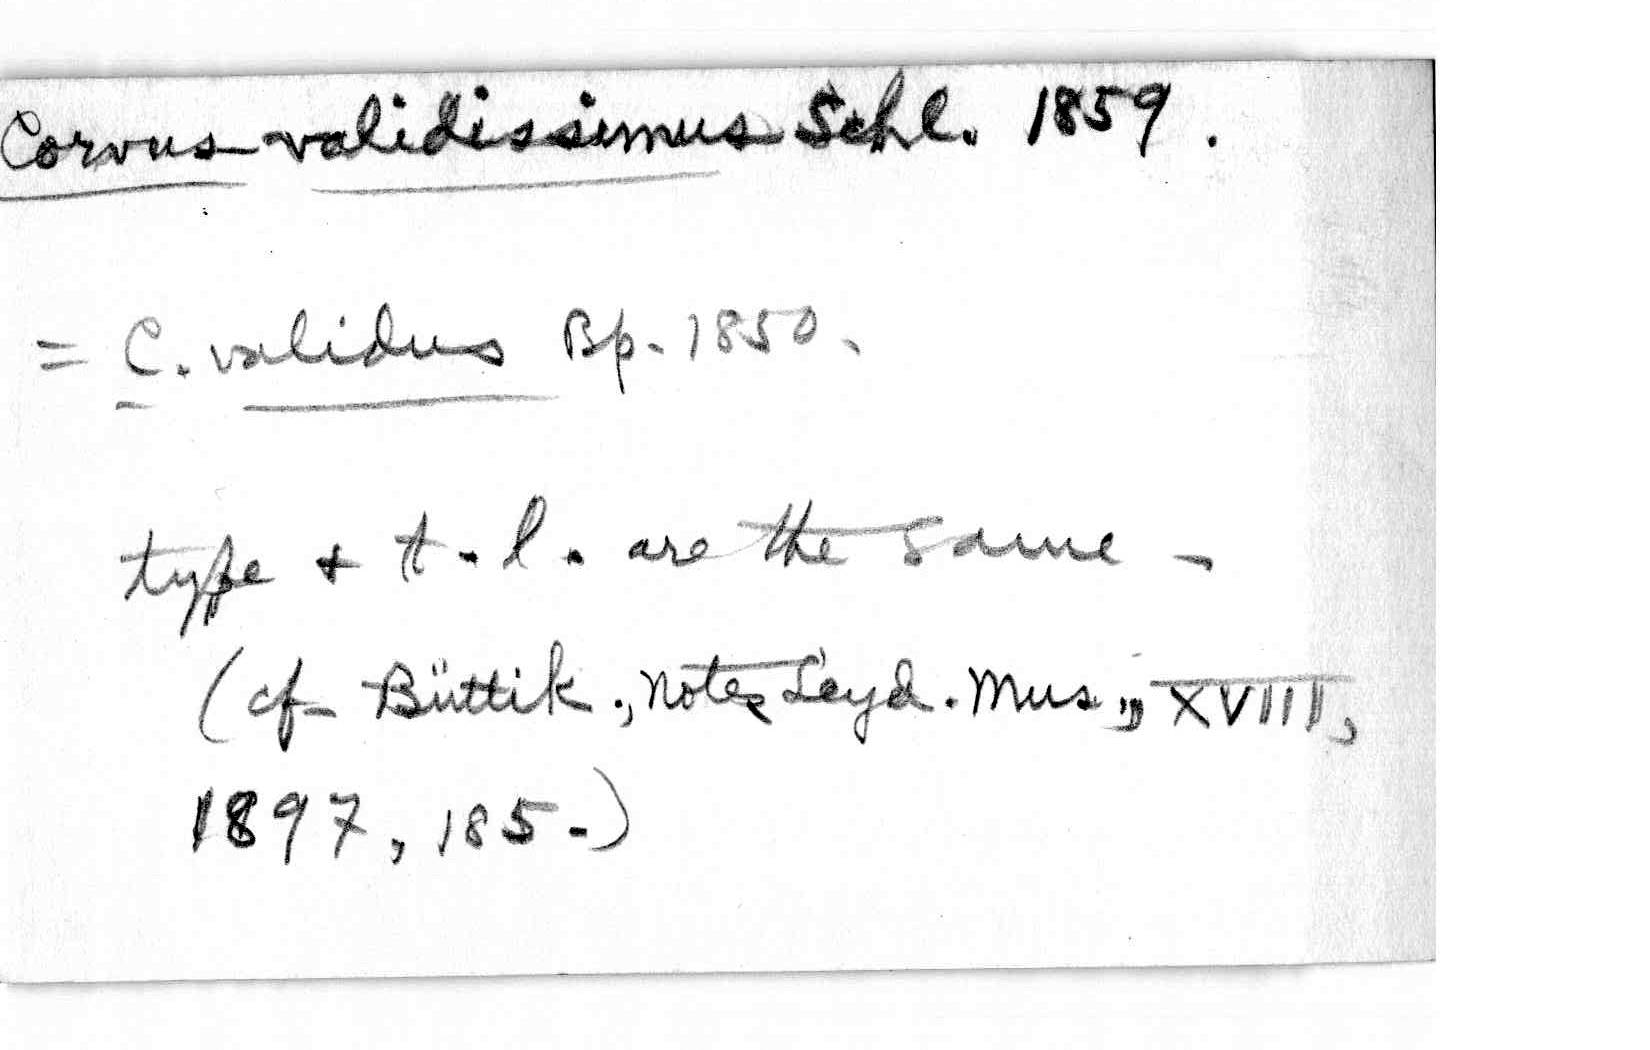 Corvus validissimus Schl. 1859.
= C. validus Bp. 1850.
type + t.l. are the same -
(cf. Büttik., Notes Leyd. Mus., XVIII,
1897, 185-)